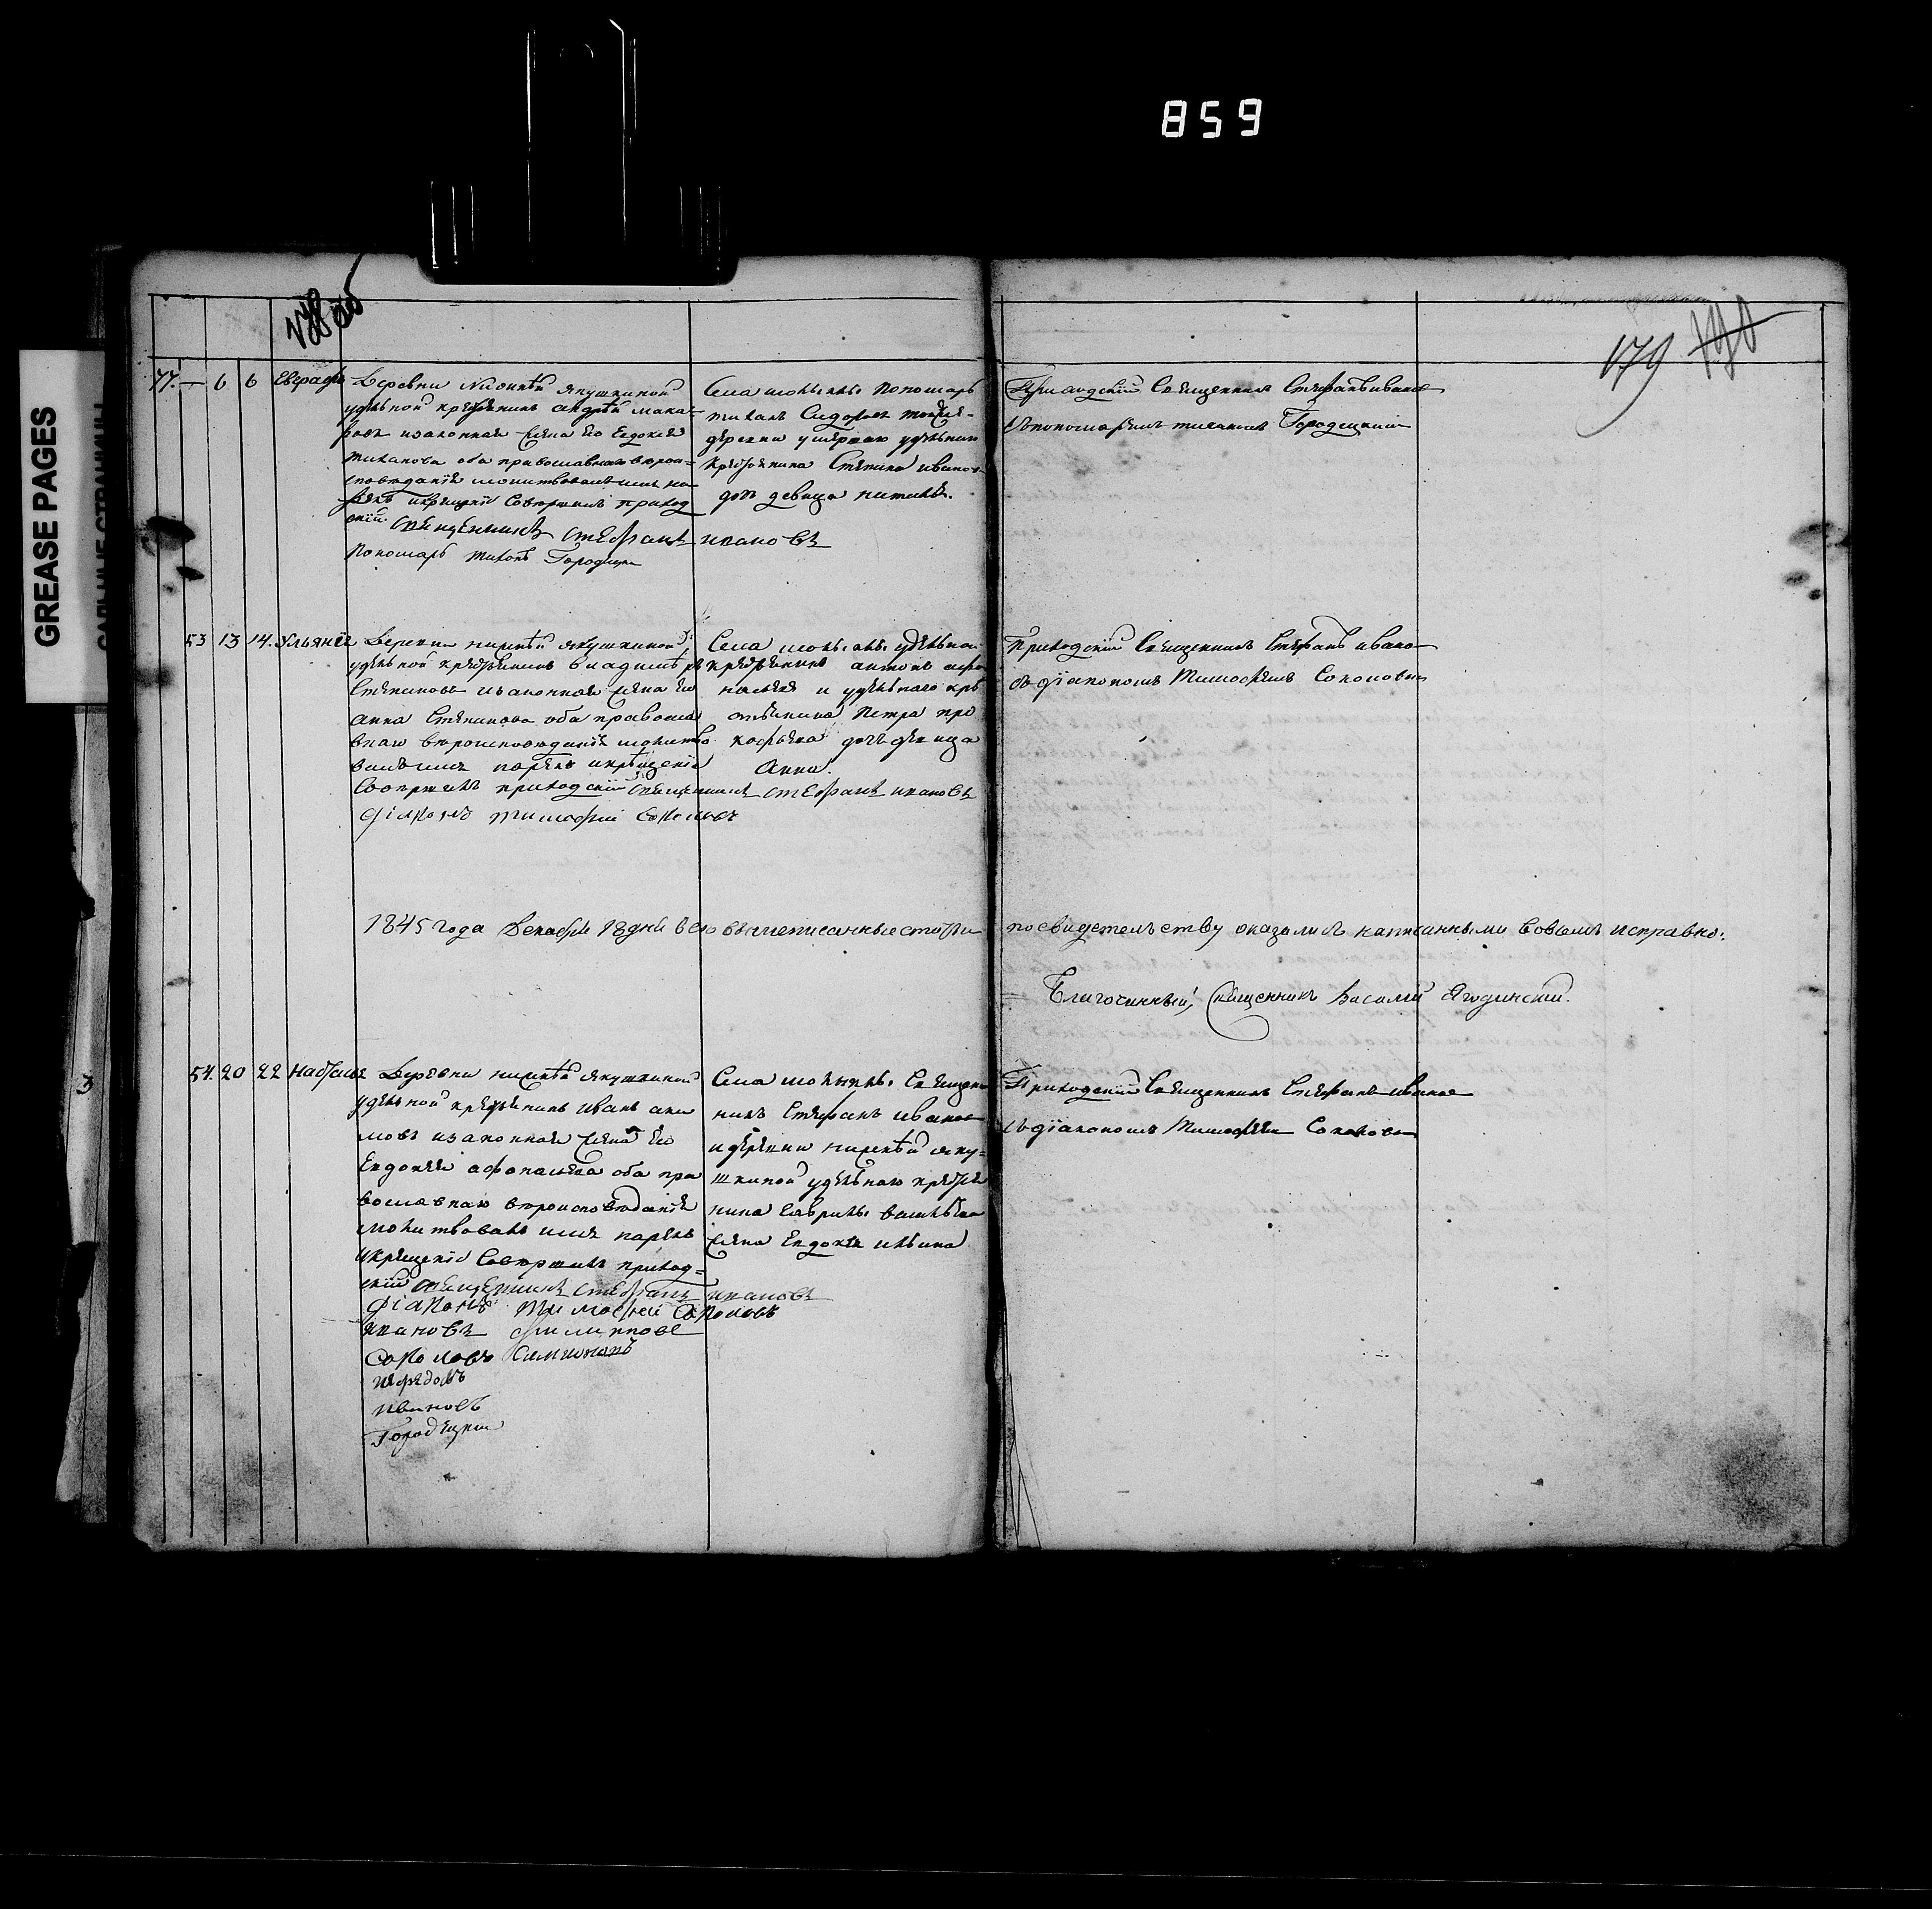 859
GREASE PAGES
178 об
179
77. — 6 6 Евграфъ
Деревни Нижнѣй Якушкиной
удѣльной крестьянинъ андрѣй мака-
ровъ изаконная жена Его Евдокея
тиханова оба православнаго вѣрои-
споведанія молитвовалъ имя на-
рекъ икрещеніе Совершилъ приход
скій священникъ стефанъ ивановъ
Пономарь тихонъ Городецкии
Пономарь
тиханъ Сидоровъ
деревни умершаго удѣльнаго
крестьянина Степана иванова
дочь девица
Приходскій Священникъ Стефанъ иванов
Съпономаремъ тиханомъ Городецкимъ
53 13 14. Ульянея
Деревни нижнѣй якушкиной
удѣльной крестьянинъ владимѣръ
Степановъ изаконная жена Его
анна Степанова оба правосла
внаго вѣроисповеданія молитво
валъ имя нарекъ икрещеніе
Совершилъ приходскій священникъ стефанъ ивановъ
діаконъ тимофей Соколовъ
Села удѣльной
крестьянинъ антонъ афо
насьевъ и удѣльнаго кре
стьянина Петра про
кофьева дочь девица
Анна.
Приходскій Священникъ Стефанъ иванов
съдіакономъ Тимофеемъ Соколовым
1845 года Декабря 18 дня все вышеписанные статьи
посвидетельству оказались написанными совсемъ исправно.
Благочинный, Священникъ Василій Ягодинскій.
54. 20 22 Настасья
Деревни нижнѣй Якушкиной
удѣльной крестьянинъ Иванъ аки
мовъ изаконная жена Его
Евдокея афонасьева оба пра
вославнаго вѣроисповѣданія
молитвовалъ имя нарекъ
икрещеніе Совершилъ приход-
скій священникъ стефанъ ивановъ
діаконъ Тимофей Соколовъ
Ивановъ филиппов
Соколовъ Симионовъ
нефедовъ
ивановъ
Городецкии
Села Священ
никъ Стефанъ Иванов
идеревни нижнѣй яку-
шкиной удѣльнаго крестья
нина Гаврилы васильева
жена Евдокея ильина
Приходскій Священникъ Стефанъ иванов
съдіакономъ Тимофеем Соколовым